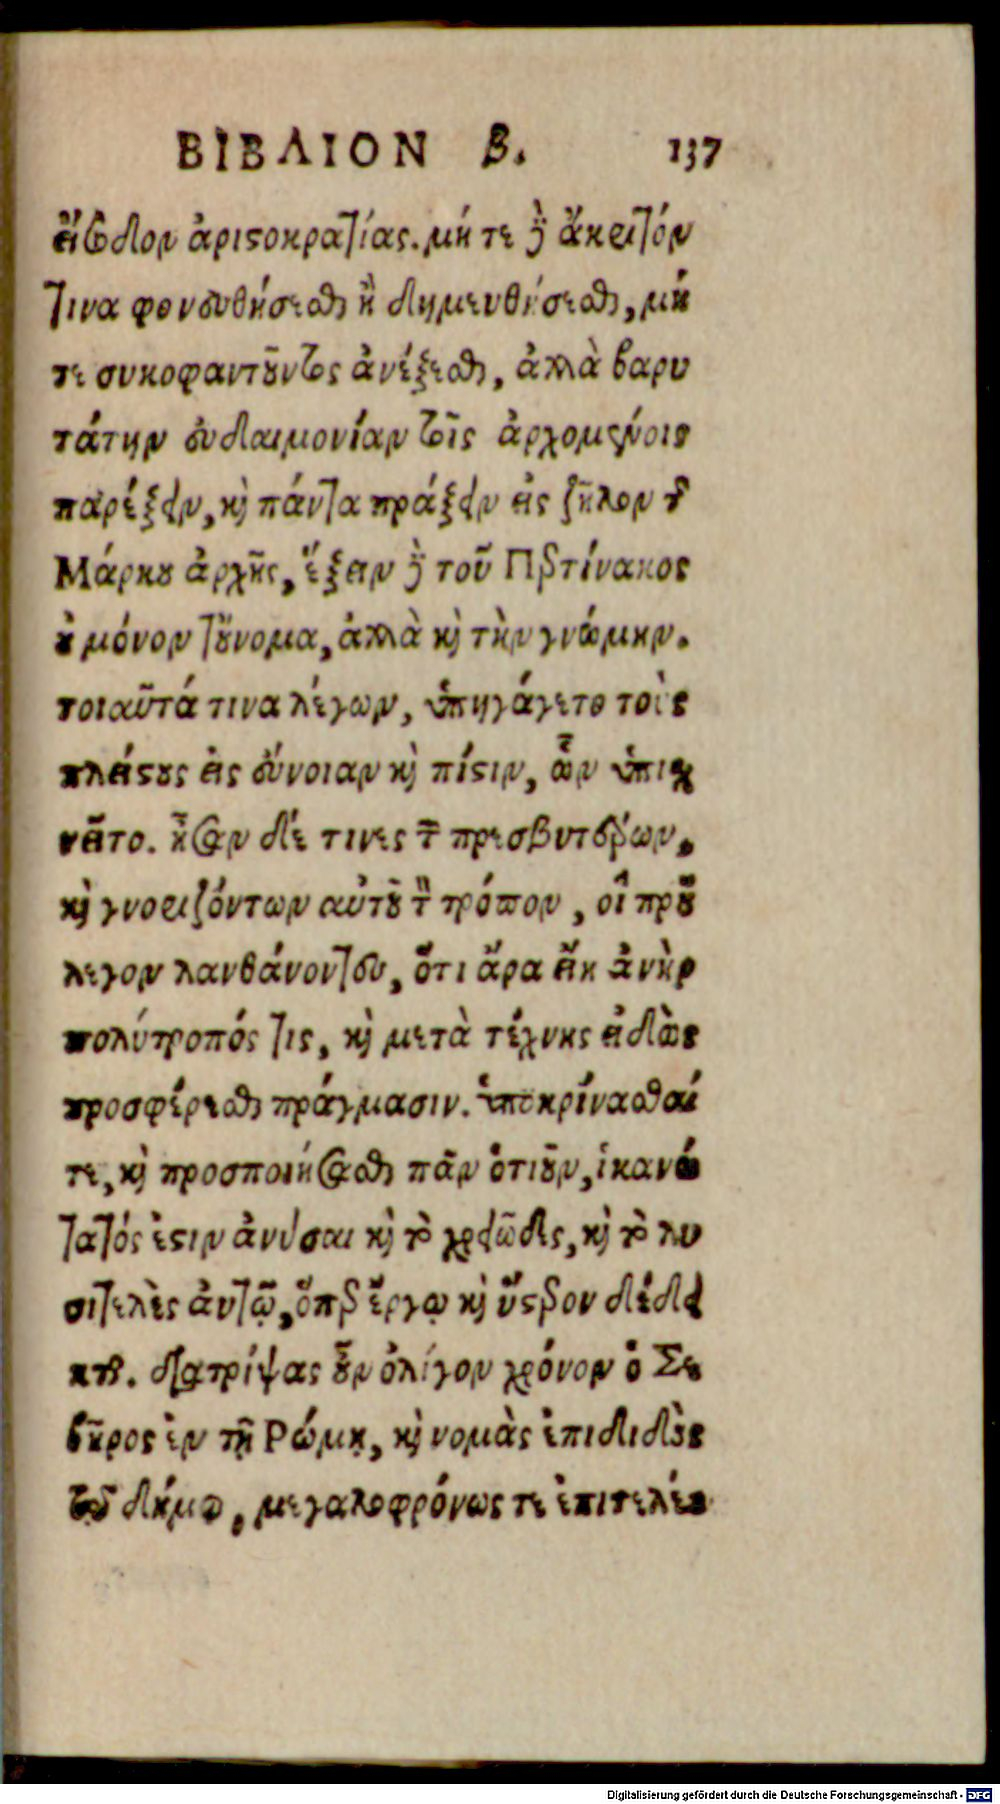 ΒΙΒΛΙΟΝ β. 137
εἴσοδον ἀριστοκρατίας. μή τε γὰρ ἄκριτόν
τινα φονευθήσεσθαι ἢ δημευθήσεσθαι, μή
τε συκοφαντοῦντος ἀνέξεσθαι, ἀλλὰ βαρυ
τάτην εὐδαιμονίαν τοῖς ἀρχομένοις
παρέξειν, καὶ πάντα πράξειν εἰς ζῆλον τῆς
Μάρκου ἀρχῆς, ἕξειν δὲ τοῦ Περτίνακος
οὐ μόνον τοὔνομα, ἀλλὰ καὶ τὴν γνώμην.
τοιαῦτά τινα λέγων, ὑπηγάγετο τοὺς
πλείστους εἰς εὔνοιαν καὶ πίστιν, ὧν ὑπισχ
νεῖτο. ἦσαν δέ τινες τῶν πρεσβυτέρων,
καὶ γνοριζόντων αὐτοῦ τὸν τρόπον, οἳ προὔ
λεγον λανθάνοντες, ὅτι ἄρα εἴη ἀνὴρ
πολύτροπός τις, καὶ μετὰ τέχνης εἰδὼς
προσφέρεσθαι πράγμασιν. ὑποκρίνασθαί
τε, καὶ προσποιήσασθαι πᾶν ὁτιοῦν, ἱκανώ
τατός ἐστιν ἀνύσαι καὶ τὸ χρειῶδες, καὶ τὸ λυ
σιτελὲς αὐτῷ, ὅπερ ἔργῳ καὶ ὕστερον ἐδεί
χθη. διατρίψας οὖν ὀλίγον χρόνον ὁ Σε
βῆρος ἐν τῇ Ρώμῃ, καὶ νομὰς ἐπιδιδὸς
τῷ δήμῳ, μεγαλοφρόνως τε ἐπιτελέσ
Digitalisierung gefördert durch die Deutsche Forschungsgemeinschaft - DFG